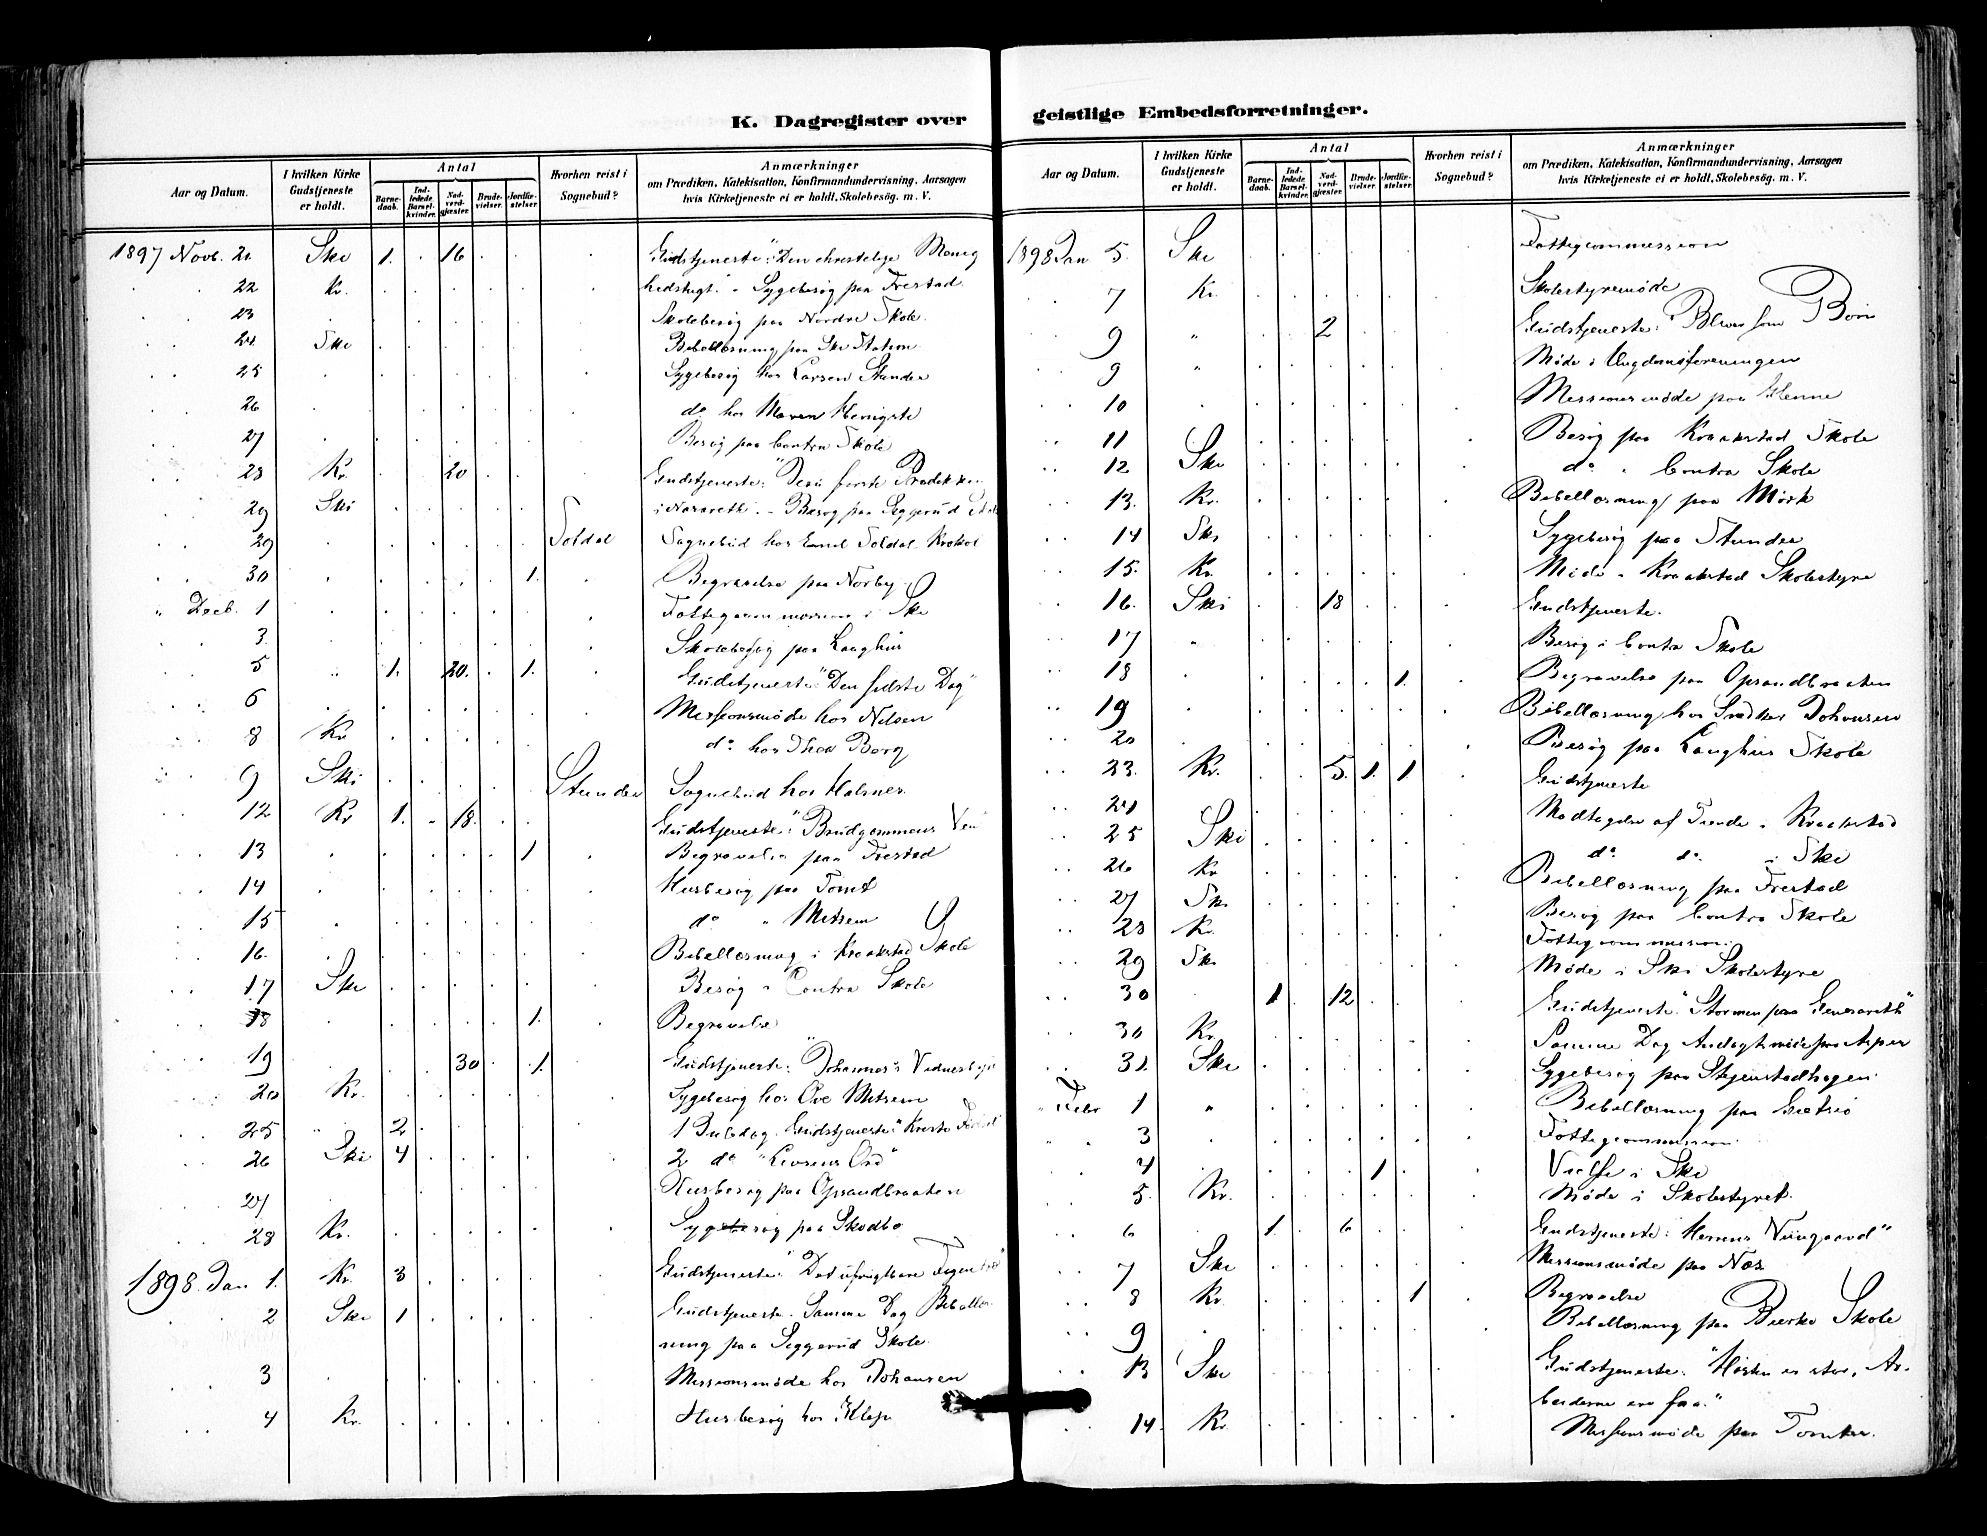 K. Dagregister over
Aar og Datum.
I hvilken Kirke Gudstjeneste er holdt.
Antal
Barne-daab.
Ind-ledede Barsel-kvinder.
Nad-verd-gjæster.
Brude-vielser.
Jordfæ-stelser.
Hvorhen reist i Sognebud?
Anmærkninger
om Prædiken, Katekisation, Konfirmandundervisning, Aarsagen
hvis Kirketjeneste ei er holdt, Skolebesög. m. V.
1897 Novb. 21 Ski 1. 16 Gudstjeneste: "Den christelige Menig
22 Kr. hedstugt." - Sygebesøg paa Frestad.
23 Skolebesøg paa Nordre Skole.
24 Ski Bibellæsning paa Ski Station
25 Sygebesøg hos Larsen Stunder
26 do hos Maren
27 Besøg paa Contra Skole
28 Kr. 20 Gudstjeneste: Jesu første Prædiken
29 Ski i Nazareth. - Besøg paa Seggerud
29 Soldal Sognebud hos Emil Soldal Krokol
30 1. Begravelse paa Norby.
" Decb. 1 Fattigcommission i Ski
3. Skolebesøg paa Langhus
5 " 1. 20. 1. Gudstjeneste: "Den sidste Dag"
6 Missionsmøde hos Nilsen
8 Kr do hos Thea Berg
9 Ski Stunder Sognebud hos
12 Kr 1. 18. Gudstjeneste: "Brudgommens Ven"
13 1 Begravelse paa Frestad
14 Husbesøg paa Tomt
15 do " Mitsem
16. Bibellæsning i Kraakstad Skole
17 Ski Besøg i Contra Skole
18 1. Begravelse
19 30 1. Gudstjeneste: "Johannes's
20 Kr. Sygebesøg hos Ove Mitsem
25 " 2 1 Juledag. Gudstjeneste:
26 Ski 4 2 do "Livsens Ord"
27 Husbesøg paa Opsandbraaten
28 Kr. Sygebesøg paa Skodbo
1898. Jan 1. Kr. 3 Gudstjeneste: "Det ufrugtbare
2 Ski 1 Gudstjeneste. Samme Dag Bibellæs-
ning paa Seggerud Skole.
3 Missionsmøde hos Johansen
4 Kr. Husbesøg hos
geistlige Embedsforretninger.
Aar og Datum.
I hvilken Kirke Gudstjeneste er holdt.
Antal
Barne-daab.
Ind-ledede Barsel-kvinder.
Nad-verd-gjæster.
Brude-vielser.
Jordfæ-stelser.
Hvorhen reist i Sognebud?
Anmærkninger
om Prædiken, Katekisation, Konfirmandundervisning, Aarsagen
hvis Kirketjeneste ei er holdt, Skolebesög. m. V.
1898 Jan 5. Ski Fattigcommission
7 Kr. Skolestyremøde
9 " 2 Gudstjeneste: Bliver som Børn
9 " Møde i Ungdomsforeningen
10 Missionsmøde paa
11 Besøg paa Kraakstad Skole
12 Ski do " Contra Skole
13. Kr. Bibellæsning paa Mørk
14 Ski Sygebesøg paa Stunder
15. Kr. Møde i Kraakstad Skolestyre
16. Ski 18 Gudstjeneste.
17 " Besøg i Contra Skole
18 1. Begravelse paa Opsandbraaten
19 Bibellæsning hos Johansen
20 Besøg paa Langhus Skole
23. Kr. 5. 1. 1 Gudstjeneste
24 Modtagelse af Tiende i Kraakstad
25 Ski do do i Ski
26 Kr Bibellæsning paa Frestad
27 Ski Besøg paa Contra Skole
28 Kr. Fattigcommission.
29 Ski Møde i Ski Skolestyre
30 1 12 Gudstjeneste: "Stormen paa Genesareth"
30 Kr. Samme Dag Andagtsmøde paa
31. Ski Sygebesøg paa Stejenstadhagen
" Febr 1 " Bibellæsning paa
3 Fattigcommission.
4 1 Vielse i Ski
5. Kr. Møde i Skolestyret.
6 1. 6 Gudstjeneste: Herrens Viingaard"
7 Ski Missionsmøde paa Næs
8 Kr. 1 Begravelse
9 Bibellæsning paa Skole
13 Ski Gudstjeneste: "Høsten er stor, Ar-
beiderne ere faa."
14. Kr. Missionsmøde paa Tomter.